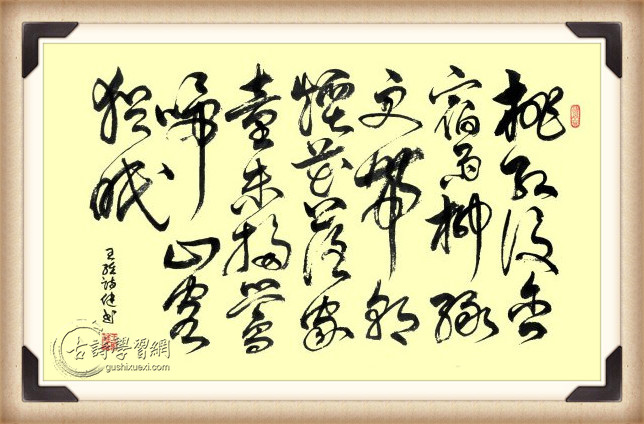 桃紅復含
宿雨柳綠
更帶朝
煙花落家
童未掃鶯
啼山客
猶眠
王維詩
古詩學習網
gushixuexi.com